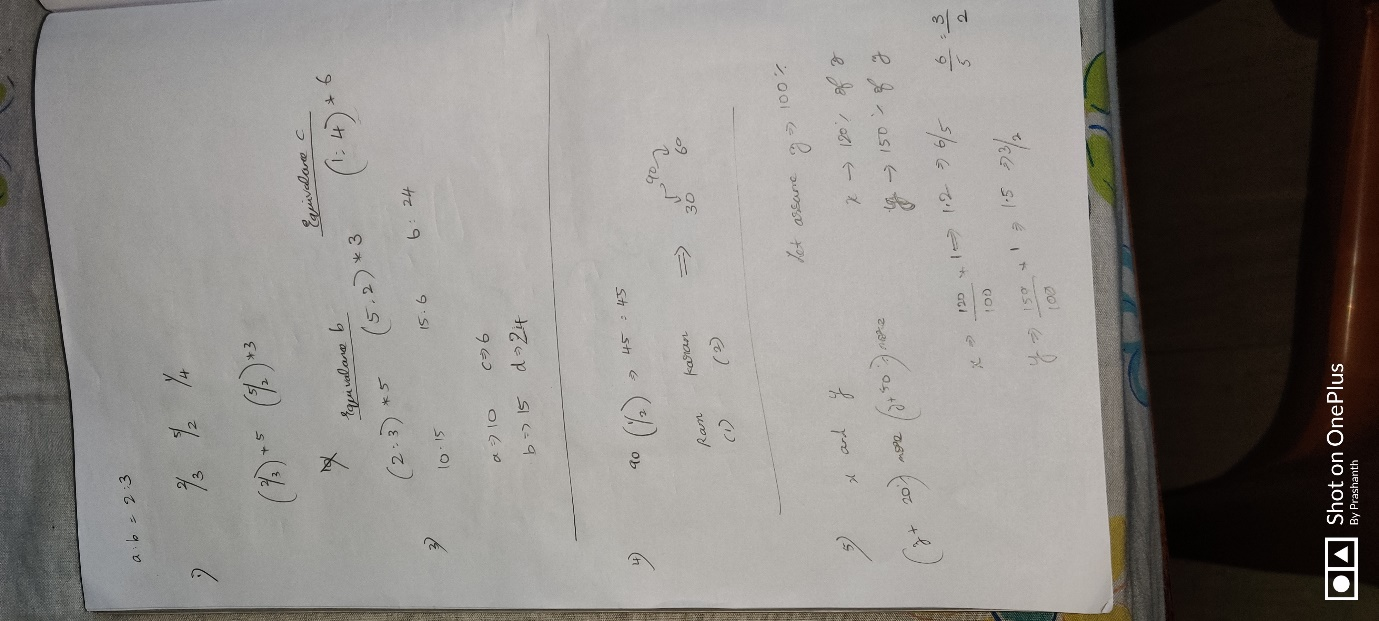 a:b = 2:3
1) 2/3 5/2 1/4
(2/3) * 5 (5/2) * 3
Equivalane b Equivalane c
(2:3) * 5 (5.2) * 3 (1:4) * 6
3) 10:15 15.6 6:24
a => 10 c => 6
b => 15 d => 24
4) 90 (1/2) => 45 : 45
90
Ram Karan => 30 60
(1) (2)
Let assume z => 100%
5) x and y x → 120% of z
(z + 20%) more (z + 50%) more y → 150% of z
x => 120/100 * 1 => 1.2 => 6/5 6/5 : 3/2
y => 150/100 * 1 => 1.5 => 3/2
Shot on OnePlus
By Prashanth